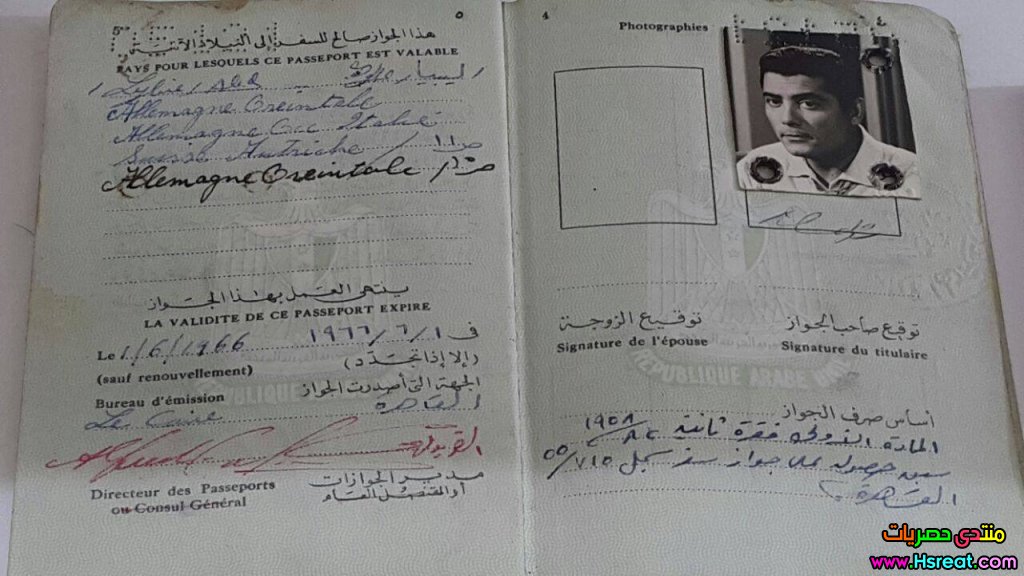 ٥
هذا الجواز صالح للسفر إلى البلاد الآتية
PAYS POUR LESQUELS CE PASSEPORT EST VALABLE
Lybie ليبيا
Allemagne Oreintale
Allemagne Italie
Suisse Autriche
Allemagne Oreintale
ينتهى العمل بهذا الجواز
LA VALIDITE DE CE PASSEPORT EXPIRE
Le 1/6/1966 ١٩٦٦/٦/١ فى
(sauf renouvellement) (إلا إذا تجدد)
Bureau d'émission الجهة التى أصدرت الجواز
Le Caire القاهرة
Directeur des Passeports مدير الجوازات
ou Consul Général أو القنصل العام
٤
Photographies
توقيع الزوجة
Signature de l'épouse
توقيع صاحب الجواز
Signature du titulaire
REPUBLIQUE ARABE
أساس صرف الجواز
المادة فقرة ثانية ١٩٥٨
جواز سفر
القاهرة
منتدى حصريات
www.Hsreat.com